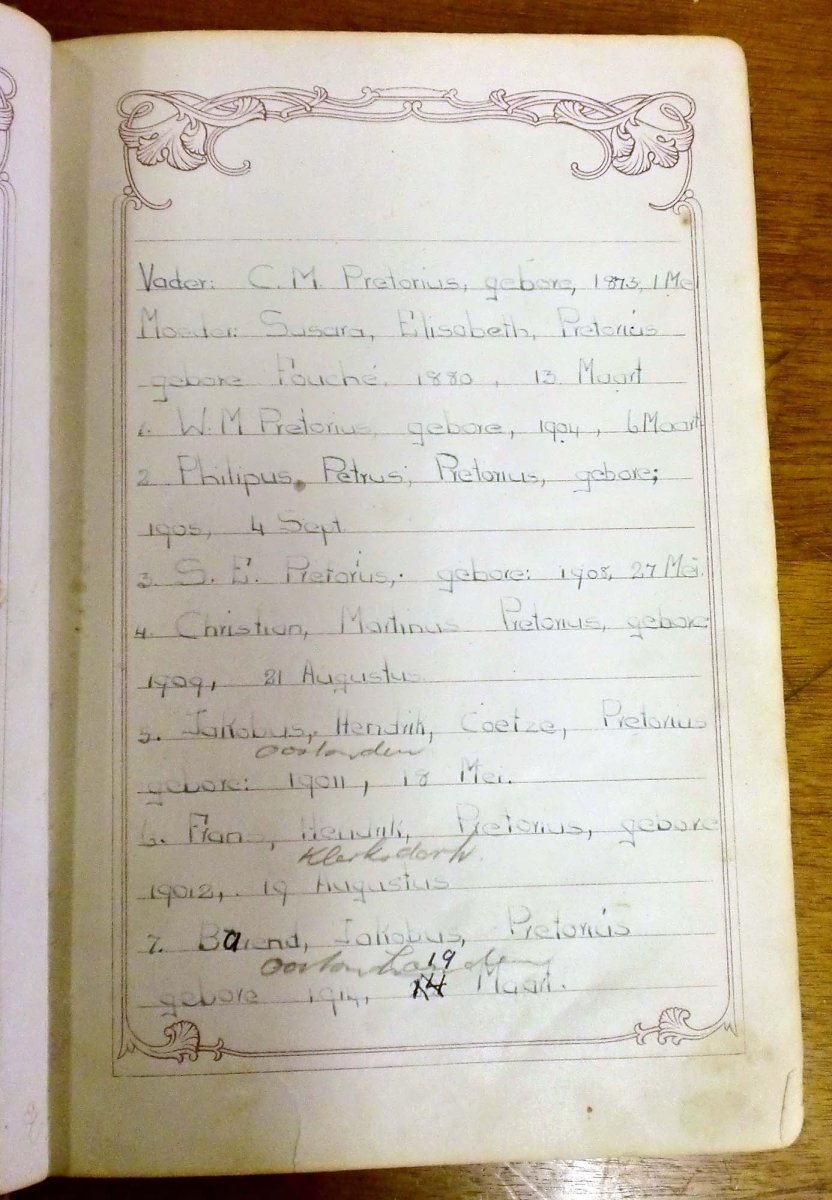 Vader: C. M. Pretorius, gebore, 1873, 1 Mei
Moeder: Susara, Elisabeth, Pretorius
gebore Fouché. 1880, 13 Maart
1. W. M Pretorius, gebore, 1904, 6 Maart
2 Philipus, Petrus, Pretorius, gebore;
1905, 4 Sept
3. S. E. Pretorius, gebore: 1908, 27 Mei.
4. Christian, Martinus Pretorius, gebore
1909, 21 Augustus
5. Jakobus, Hendrik, Coetze, Pretorius
gebore: 19011, 18 Mei.
6. Frans, Hendrik, Pretorius, gebore
Klerksdorp.
19012, 19 Augustus
7. Barend, Jakobus, Pretorius
19
gebore 1914, 14 Maart.